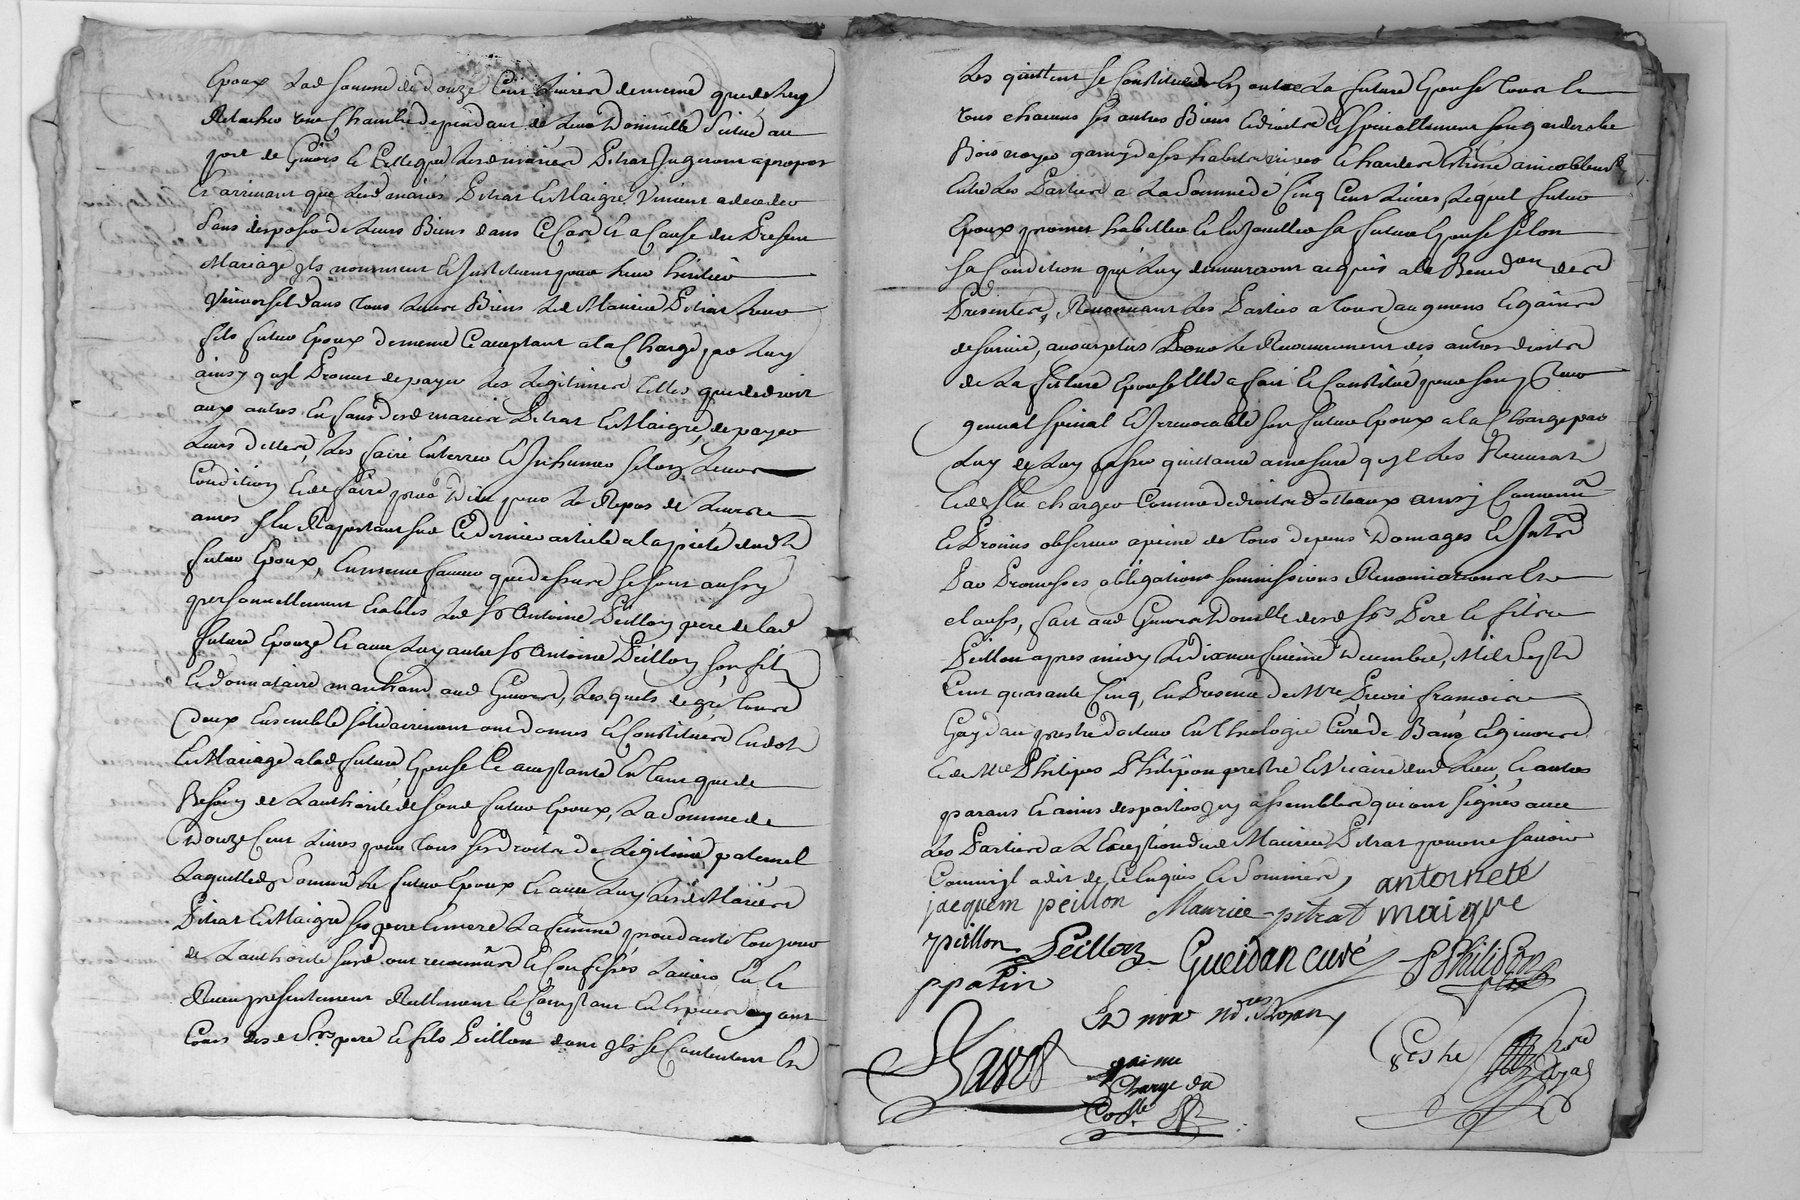 Epoux Lad somme de douze Cent Livres de meme que de luy
Relacher une Chambre dependant de Leur Domicille situé au
port de Givors et Celle que Lesd mariés Pitrat Jugeront apropos
Et arrivant que Lesd mariés Pitrat et Maigre Vinient a deceder
Sans disposer de Leurs Biens dans Ce Cas Et a Cause du Present
Mariage Ils nomment et Instituent pour leur héritier
Universel dans tous Leurs Biens Led Maurice Pitrat leur
fils futur Epoux de meme acceptant a la Charge par Luy
ainsy qu'yl Promet de payer Les Legitimes telles que de droit
aux autres Enfans desd mariés Pitrat et Maigre, de payer
Leurs dettes, Les faire Enterrer et Inhumer selon Leur
Condition et de faire prier Dieu pour Le Repos de Leurs
ames s'en Raportant sur Ce dernier article a la pieté dud
futur Epoux, En meme faveur que dessus se sont aussy
personnellement Etablis Led Sr Antoine Peillon pere de lad
future Epouze et avec Luy autre Sr Antoine Peillon son fils
et donnataire marchand aud Givors, Lesquels de gré tous
deux Ensemble solidairement ont donnés et Constitués En dot
et Mariage a lad future Epouse acceptante En tant que de
Besoin de L'authorité de sond futur Epoux, La Somme de
Douze Cent Livres pour tous ses droits de Légitime paternel
Laquelle Somme Le futur Epoux et avec Luy Lesd Mariés
Pitrat et Maigre ses pere et mere La femme procedante toujours
de L'authorité susd ont reconnus et Confessés L'avoir Eu et
Receu presentement Reellement et Comptant En Especes ayant
Cours desd Srs pere et fils Peillon dont Ils se Contentent et
Les quittent se Constitue En outre La future Epouse tous et
tous chacuns ses autres Biens et droits et specialement son garderobe
Bois noyer garny de ses habits Linges et hardes Estimé amicablement
Entre Les Parties a La Somme de Cinq Cent Livres, Lequel futur
Epoux promet habiller et En Joailler sa future Epouse selon
sa Condition qui Luy demeureront acquis a la Bened.on des
Presentes, Renonçant Les Parties a tous augmens et gains
de survie, au surplus Pour Le Recouvrement des autres droits
de La future Epouse Elle a fait et Constitué pour son Preur
general special et Irrevocable son futur Epoux a la Charge par
Luy de Luy passer quittance a mesure qu'yl Les Recevra
et de s'en charger Comme de droits dotteaux ainsi Convenu
et Promis observer a peine de tous depens Domages et Intrets
Par Promesses obligations soumissions Renonciations et
clauses, fait aud Givors Domicille desd Srs Pere et fils
Peillon apres midy Le dix neufvieme Decembre, Mil Sept
Cent quarante Cinq, En Presence de Mre Pierre francois
Gaydan prestre docteur En Theologie Curé de Bans et givors
et de Mre Philipes Philipon prestre et Vicaire dud Lieu, et autres
parans et amis des parties Icy assemblés qui ont signés avec
Les Parties a L'Exception dud Maurice Pitrat pour ne savoir
Comm'yl a dit de Ce Enquis et Sommé,
antoinete
jacquem peillon Maurice pitrat maigre
peillon Peillon Gueidan curé P Philipon
p patin
Et nous nd.res Royaux
gai me
Charge da
Coste